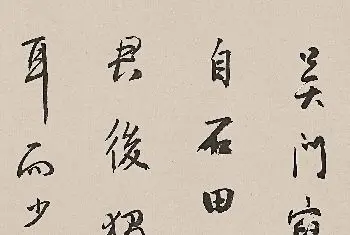 吴门
自石田
君後
耳而少